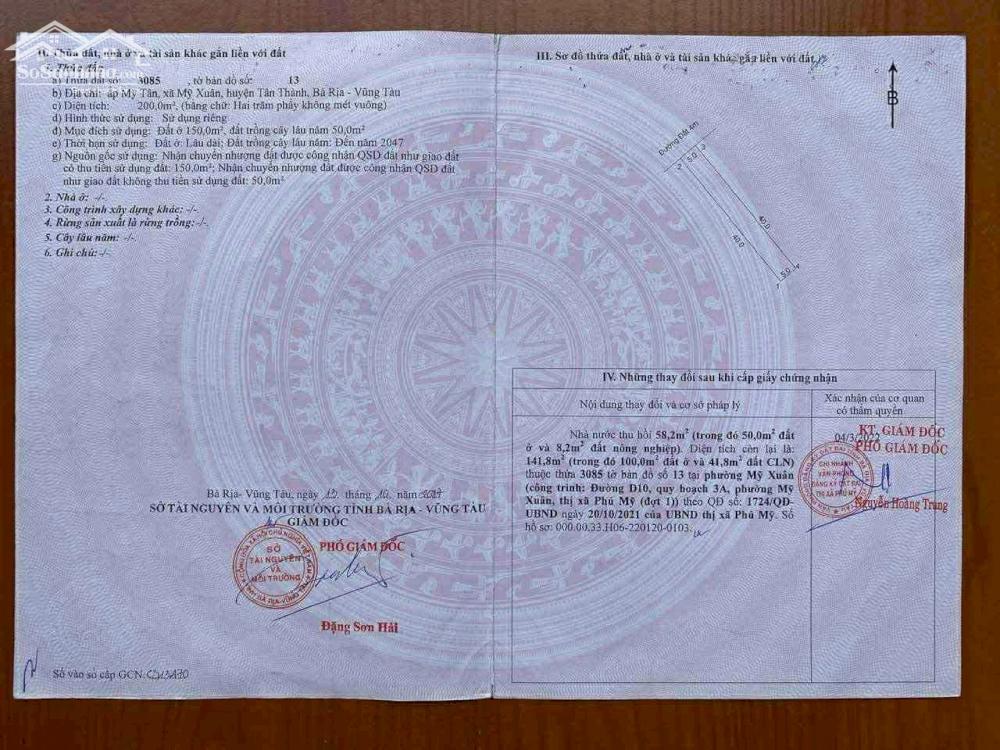 II. Thửa đất, nhà ở và tài sản khác gắn liền với đất
1. Thửa đất:
a) Thửa đất số: 3085 , tờ bản đồ số: 13
b) Địa chỉ: ấp Mỹ Tân, xã Mỹ Xuân, huyện Tân Thành, Bà Rịa - Vũng Tàu
c) Diện tích: 200,0m², (bằng chữ: Hai trăm phẩy không mét vuông)
d) Hình thức sử dụng: Sử dụng riêng
đ) Mục đích sử dụng: Đất ở 150,0m², đất trồng cây lâu năm 50,0m²
e) Thời hạn sử dụng: Đất ở: Lâu dài; Đất trồng cây lâu năm: Đến năm 2047
g) Nguồn gốc sử dụng: Nhận chuyển nhượng đất được công nhận QSD đất như giao đất
có thu tiền sử dụng đất: 150,0m²; Nhận chuyển nhượng đất được công nhận QSD đất
như giao đất không thu tiền sử dụng đất: 50,0m²
2. Nhà ở: -/-
3. Công trình xây dựng khác: -/-
4. Rừng sản xuất là rừng trồng: -/-
5. Cây lâu năm: -/-
6. Ghi chú: -/-
Bà Rịa- Vũng Tàu, ngày 12 tháng 10 năm
SỞ TÀI NGUYÊN VÀ MÔI TRƯỜNG TỈNH BÀ RỊA - VŨNG TÀU
GIÁM ĐỐC
PHÓ GIÁM ĐỐC
SỞ
TÀI NGUYÊN
VÀ
MÔI TRƯỜNG
Đặng Sơn Hải
Số vào sổ cấp GCN:
III. Sơ đồ thửa đất, nhà ở và tài sản khác gắn liền với đất
B
Đường Đất 4m
2 5.0 3
40.0
40.0
1 5.0 4
IV. Những thay đổi sau khi cấp giấy chứng nhận
Nội dung thay đổi và cơ sở pháp lý
Xác nhận của cơ quan
có thẩm quyền
Nhà nước thu hồi 58,2m² (trong đó 50,0m² đất
ở và 8,2m² đất nông nghiệp). Diện tích còn lại là:
141,8m² (trong đó 100,0m² đất ở và 41,8m² đất CLN)
thuộc thửa 3085 tờ bản đồ số 13 tại phường Mỹ Xuân
(công trình: Đường D10, quy hoạch 3A, phường Mỹ
Xuân, thị xã Phú Mỹ (đợt 1)) theo QĐ số: 1724/QĐ-
UBND ngày 20/10/2021 của UBND thị xã Phú Mỹ. Số
hồ sơ: 000.00.33.H06-220120-0103.
04/3/2022
KT. GIÁM ĐỐC
PHÓ GIÁM ĐỐC
CHI NHÁNH
VĂN PHÒNG
ĐĂNG KÝ ĐẤT ĐAI
THỊ XÃ PHÚ MỸ
Nguyễn Hoàng Trung